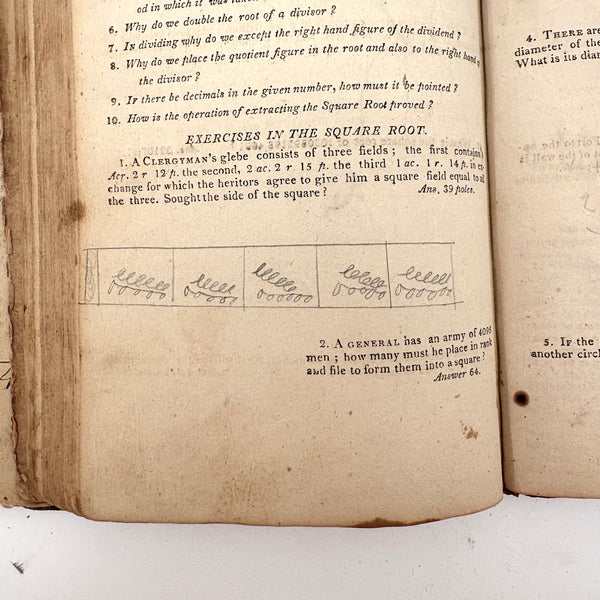 ed in which it was taken
6. Why do we double the root of a divisor?
7. In dividing why do we except the right hand figure of the dividend?
8. Why do we place the quotient figure in the root and also to the right hand of
the divisor?
9. If there be decimals in the given number, how must it be pointed?
10. How is the operation of extracting the Square Root proved?
EXERCISES IN THE SQUARE ROOT.
1. A CLERGYMAN's glebe consists of three fields; the first contains 5
Acr. 2 r 12 p. the second, 2 ac. 2 r. 15 p. the third 1 ac. 1 r. 14 p. in ex-
change for which the heritors agree to give him a square field equal to all
the three. Sought the side of the square? Ans, 39 poles.
2. A GENERAL has an army of 4096
men; how many must he place in rank
and file to form them into a square?
Answer 64.
4. THERE are
diameter of the
What is its diam
5. IF the
another circl